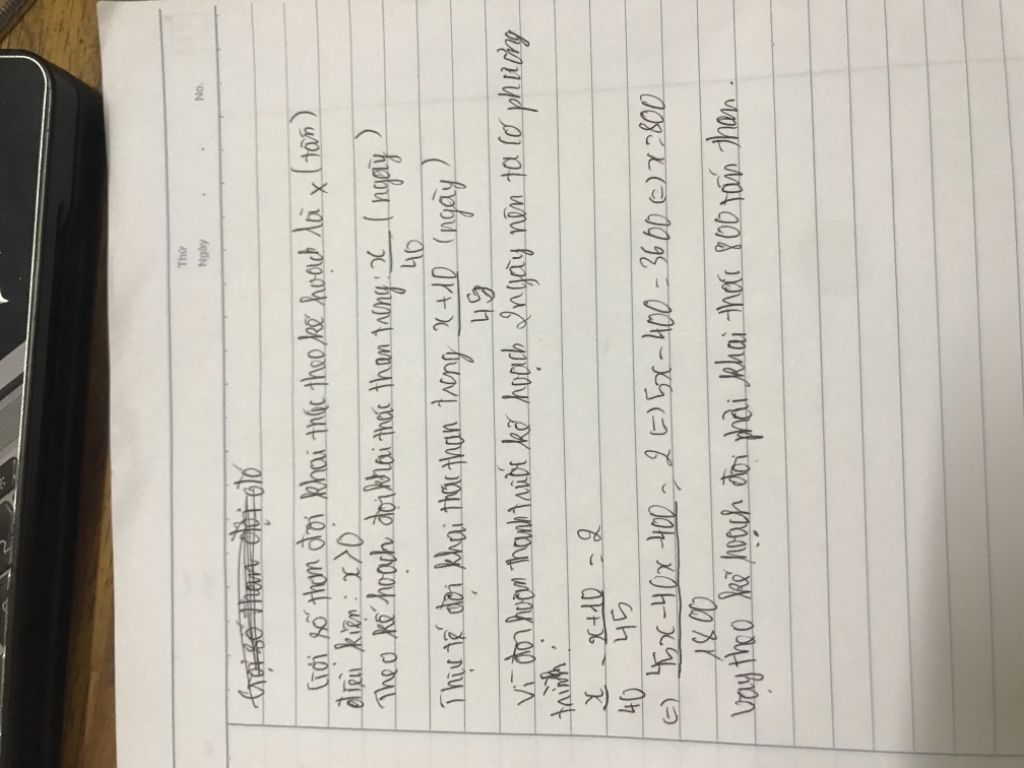 Thứ
Ngày
No.
Gọi số than đội đó
Gọi số than đội khai thác theo kế hoạch là x (tấn)
điều kiện : x > 0
Theo kế hoạch đội khai thác than trong: x/40 (ngày)
Thực tế đội khai thác than trong x+10/45 (ngày)
Vì đội hoàn thành trước kế hoạch 2 ngày nên ta có phương
trình:
x/40 - x+10/45 = 2
(=) 45x-40x-400/1800 = 2 (=) 5x-400 = 3600 (=) x = 800
Vậy theo kế hoạch đội phải khai thác 800 tấn than.